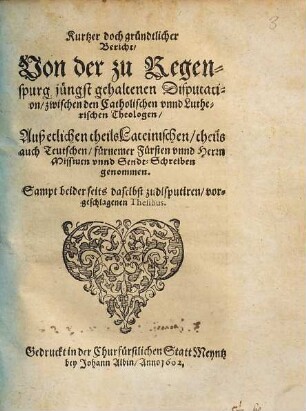 Kurtzer doch gründtlicher
Bericht/
Von der zu Regen-
spurg jüngst gehaltenen Disputati-
on/zwischen den Catholischen vnnd Luthe-
rischen Theologen/
Außerlichen theils Lateinischen/theils
auch Teutschen/fürnemer Fürsten vnnd Herrn
Missiuen vnnd Sende-Schreiben
genommen.
Sampt beiderseits daselbst zu disputiren/vor-
geschlagenen Thesibus.
Gedruckt in der Churfürstlichen Statt Meyntz
bey Johann Albin/Anno 1602,